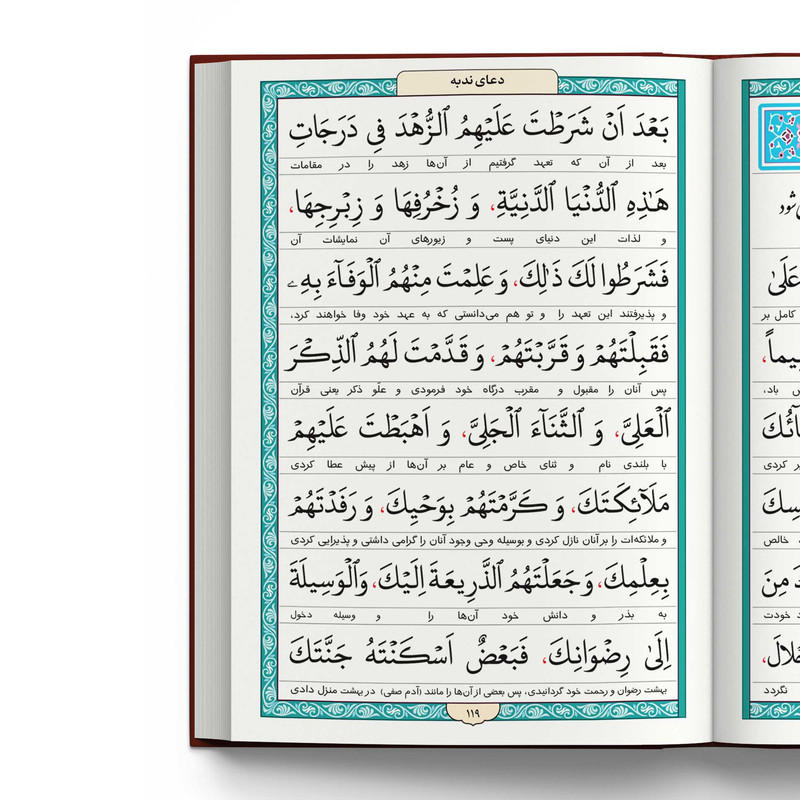 دعای ندبه
بَعْدَ اَنْ شَرَطْتَ عَلَيْهِمُ ٱلزُّهْدَ فِي دَرَجَاتِ
بعد از آن که تعهد گرفتیم از آن‌ها زهد را در مقامات
هَـٰذِهِ ٱلدُّنْيَا ٱلدَّنِيَّةِ، وَ زُخْرُفِهَا وَ زِبْرِجِهَا،
و لذات این دنیای پست و زیورهای آن نمایشات آن
فَشَرَطُوا لَكَ ذٰلِكَ، وَ عَلِمْتَ مِنْهُمُ ٱلْوَفَآءَ بِهِ
و پذیرفتند این تعهد را و تو هم می‌دانستی که به عهد خود وفا خواهند کرد،
فَقَبِلْتَهُمْ وَ قَرَّبْتَهُمْ، وَ قَدَّمْتَ لَهُمُ ٱلذِّكْرَ
پس آنان را مقبول و مقرب درگاه خود فرمودی و علّو ذکر یعنی قرآن
ٱلْعَلِيَّ، وَ ٱلثَّنَآءَ ٱلْجَلِيَّ، وَ اَهْبَطْتَ عَلَيْهِمْ
با بلندی نام و ثنای خاص و عام بر آن‌ها از پیش عطا کردی
مَلَآئِكَتَكَ، وَ كَرَّمْتَهُمْ بِوَحْيِكَ، وَ رَفَدْتَهُمْ
و ملائکه‌ات را بر آنان نازل کردی و بوسیله وحی وجود آنان را گرامی داشتی و پذیرایی کردی
بِعِلْمِكَ، وَ جَعَلْتَهُمُ ٱلذَّرِيعَةَ اِلَيْكَ، وَٱلْوَسِيلَةَ
به بذر و دانش خود آن‌ها را و وسیله دخول
اِلىٰ رِضْوَانِكَ، فَبَعْضٌ اَسْكَنْتَهُ جَنَّتَكَ
بهشت رضوان و رحمت خود گردانیدی، پس بعضی از آن‌ها را مانند (آدم صفی) در بهشت منزل دادی
۱۱۹